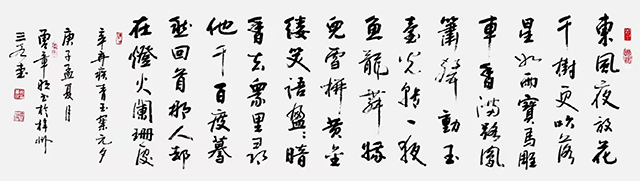 東風夜放花
千樹更吹落
星如雨寶馬雕
車香滿路鳳
簫聲動玉
壺光轉一夜
魚龍舞蛾
兒雪柳黃金
縷笑語盈盈暗
香去眾里尋
他千百度驀
然回首那人却
在燈火闌珊處
辛弃疾青玉案元夕
庚子孟夏月
章書於梓州